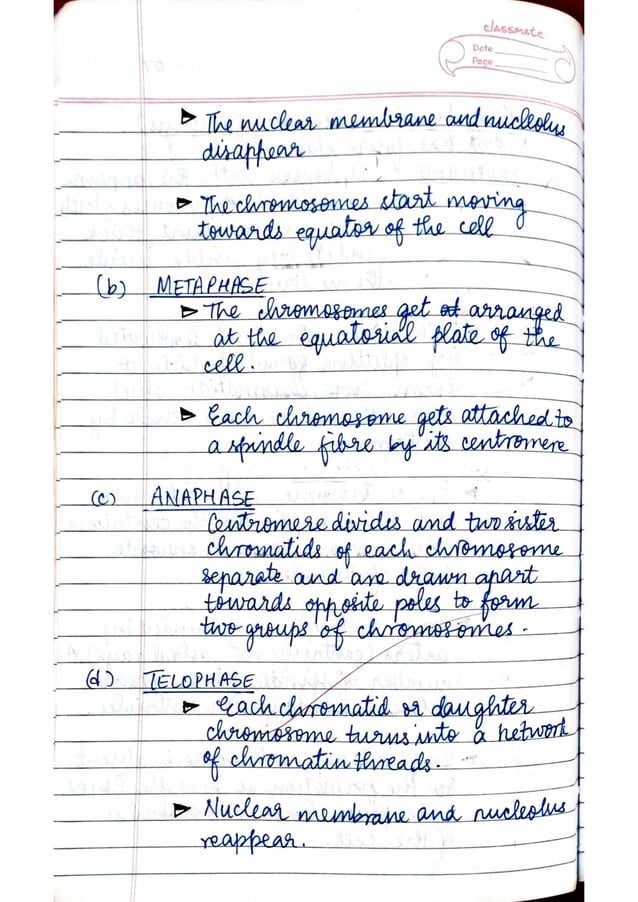 classmate
Date
Page
➤ The nuclear membrane and nucleolus
disappear
➤ The chromosomes start moving
towards equator of the cell
(b) METAPHASE
➤ The chromosomes get at arranged
at the equatorial plate of the
cell.
➤ Each chromosome gets attached to
a spindle fibre by its centromere
(c) ANAPHASE
Centromere divides and two sister
chromatids of each chromosome
separate and are drawn apart
towards opposite poles to form
two groups of chromosomes.
(d) TELOPHASE
➤ Each chromatid or daughter
chromosome turns into a network
of chromatin threads.
➤ Nuclear membrane and nucleolus
reappear.